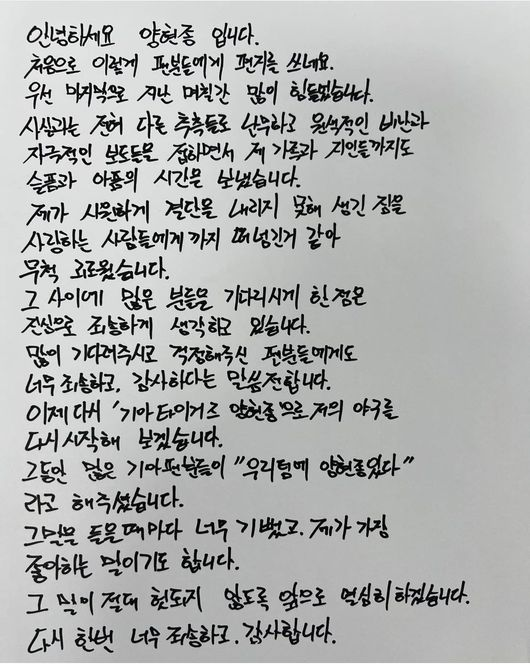 안녕하세요 양현종 입니다.
처음으로 이렇게 팬분들에게 편지를 쓰네요.
우선 마지막으로 지난 며칠간 많이 힘들었습니다.
사실과는 전혀 다른 추측들로 난무하고 원색적인 비난과
자극적인 보도들을 접하면서 제 가족과 지인들까지도
슬픔과 아픔의 시간을 보냈습니다.
제가 시원하게 결단을 내리지 못해 생긴 짐을
사랑하는 사람들에게 까지 떠넘긴거 같아
무척 괴로웠습니다.
그 사이에 많은 분들을 기다리시게 한 점은
진심으로 죄송하게 생각하고 있습니다.
많이 기다려주시고 걱정해주신 팬분들에게도
너무 죄송하고, 감사하다는 말씀전합니다.
이제 다시 '기아 타이거즈 양현종'으로 저의 야구를
다시 시작해 보겠습니다.
그동안 많은 기아팬분들이 "우리팀에 양현종있다"
라고 해주셨습니다.
그말을 들을때마다 너무 기뻤고, 제가 가장
좋아하는 말이기도 합니다.
그 말이 절대 헛되지 않도록 앞으로 열심히 하겠습니다.
다시 한번 너무 죄송하고, 감사합니다.